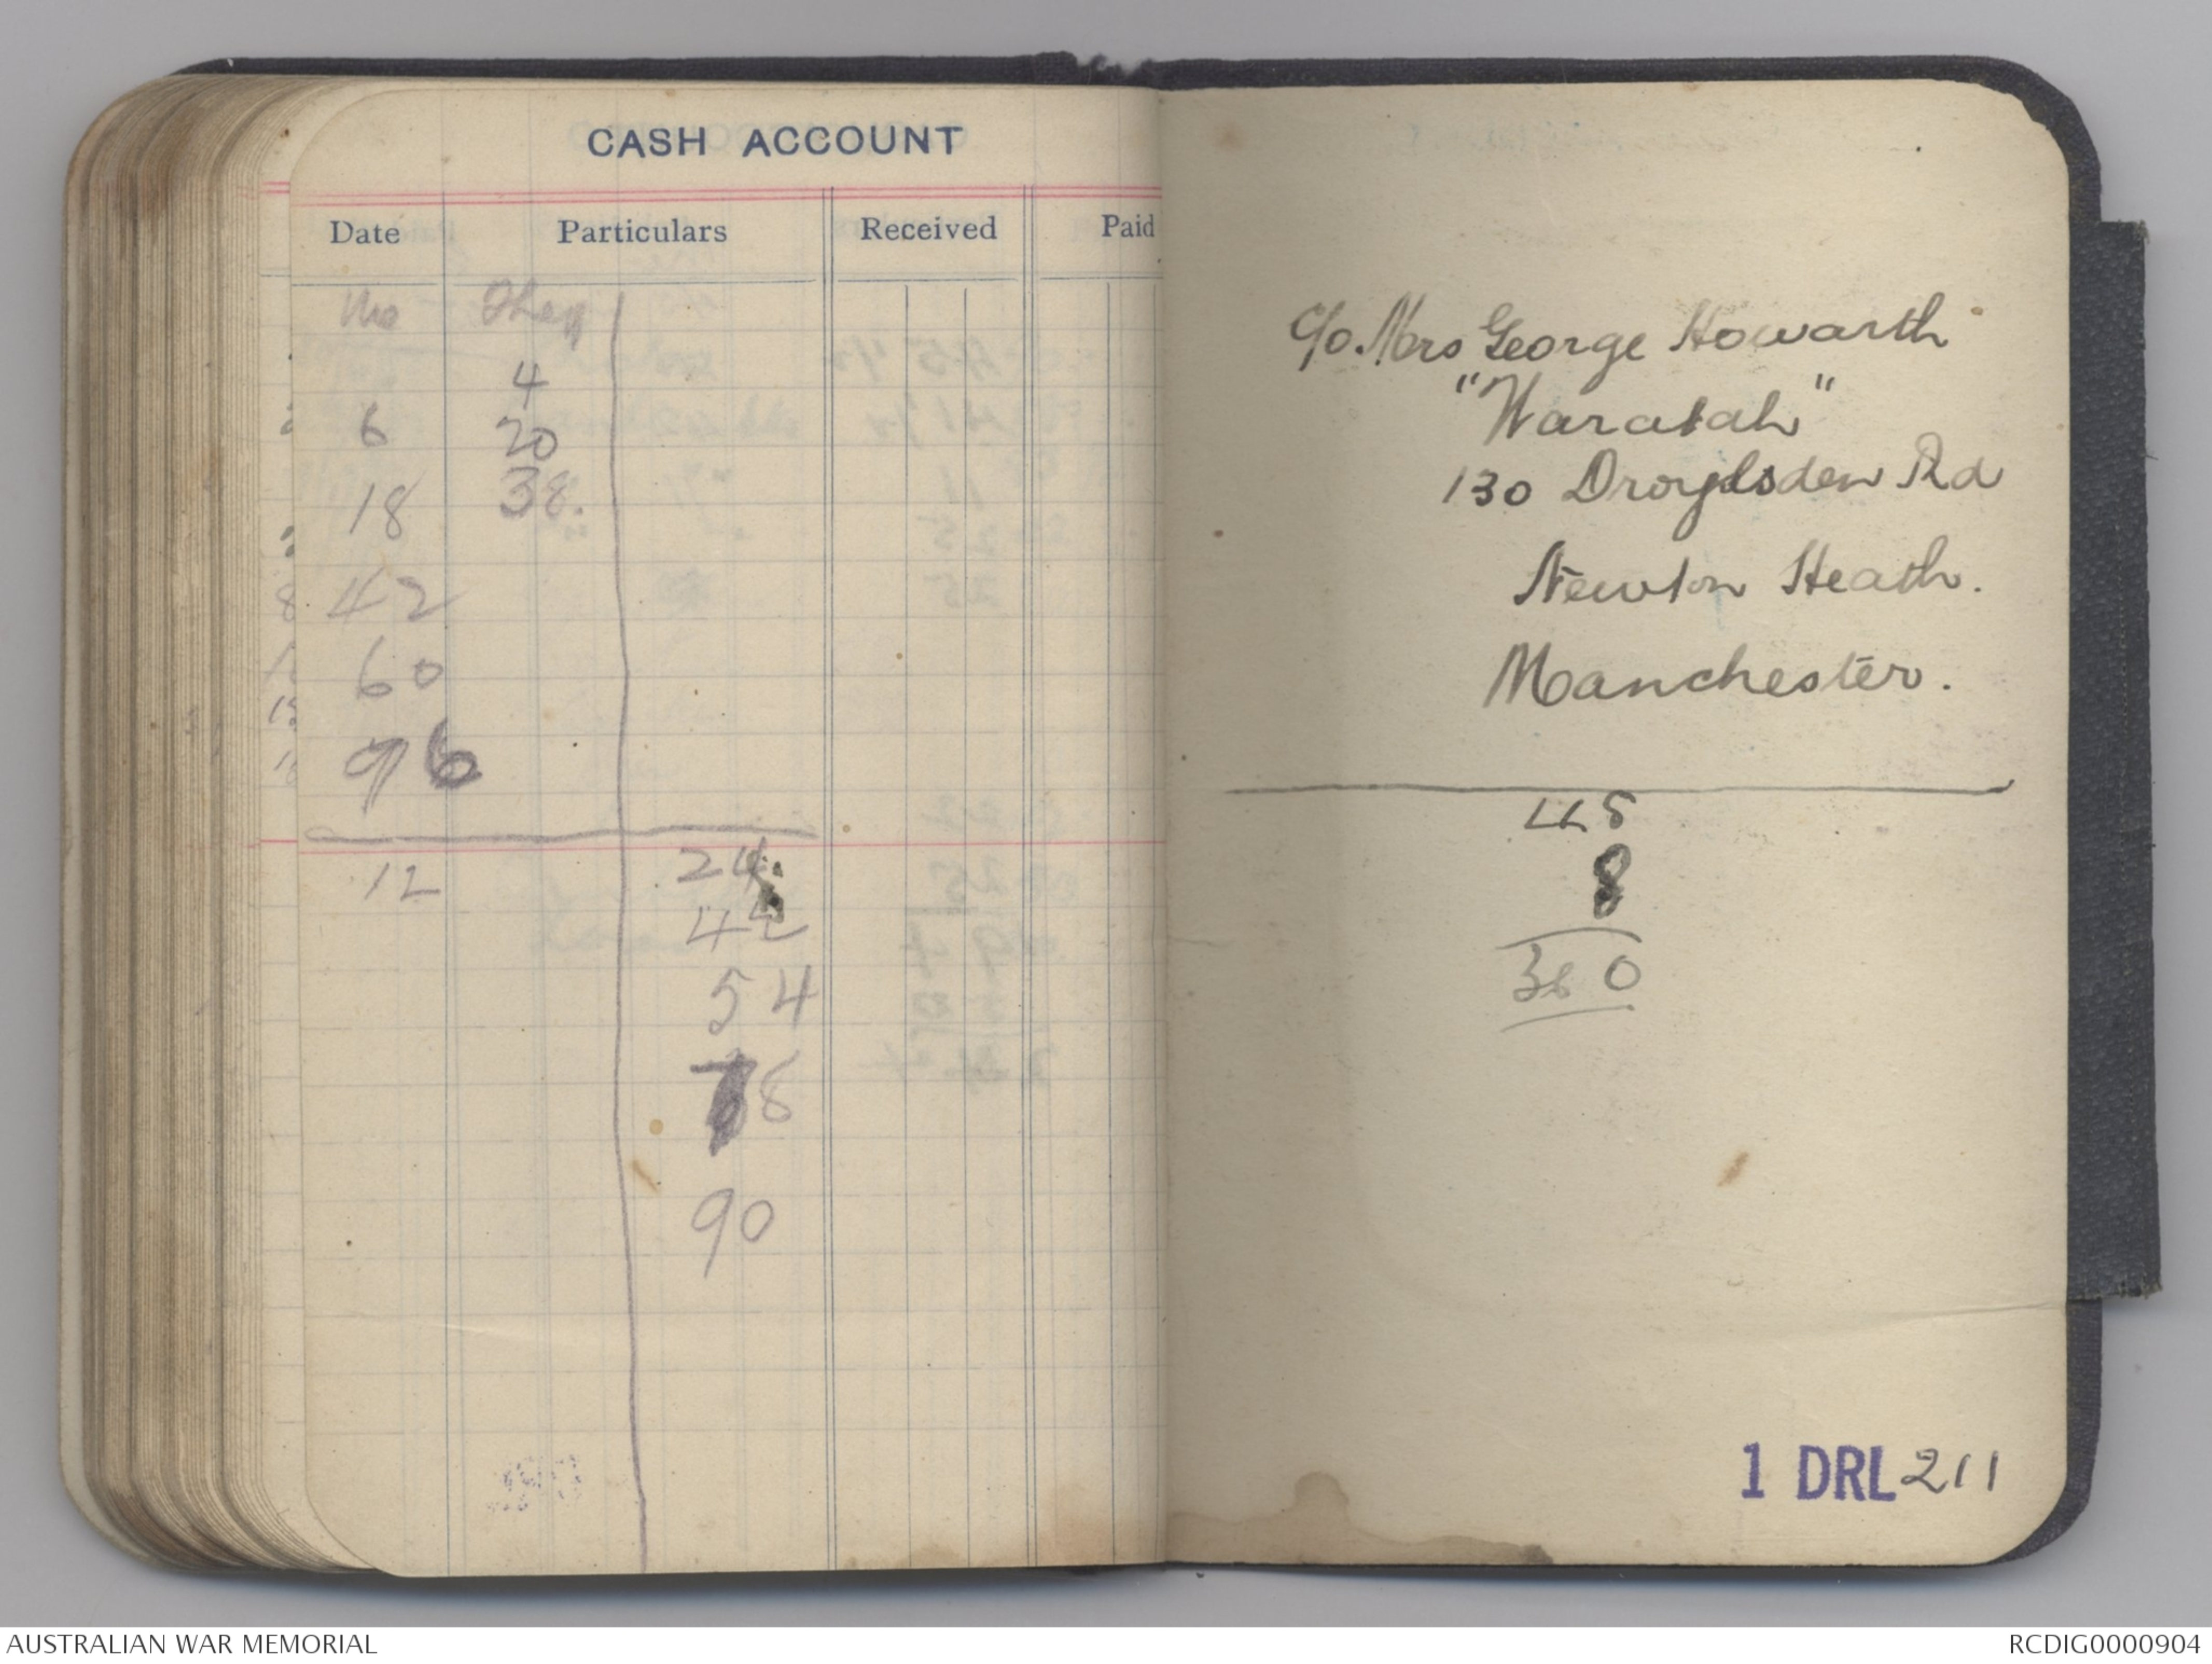 CASH ACCOUNT
Date Particulars Received Paid
Me They
4
6 20
18 38.
42
60
96
12 24
42
54
78
90
C/o. Mrs George Howarth
"Waratah"
130 Droylsden Rd
Newton Heath.
Manchester.
45
8
360
1 DRL 211
AUSTRALIAN WAR MEMORIAL
RCDIG0000904